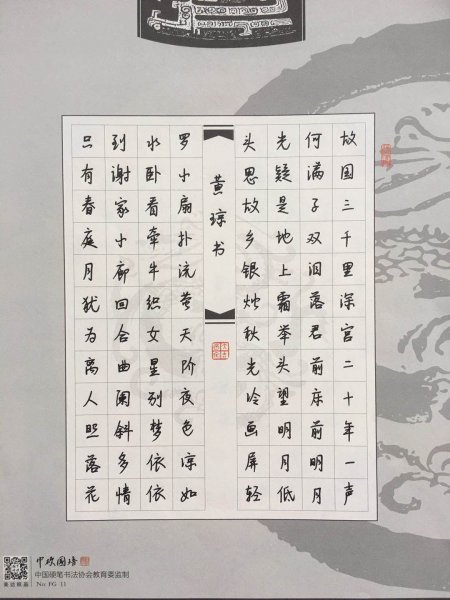 故国三千里深宫二十年一声
何满子双泪落君前床前明月
光疑是地上霜举头望明月低
头思故乡银烛秋光冷画屏轻
黄琼书
罗小扇扑流萤天阶夜色凉如
水卧看牵牛织女星别梦依依
到谢家小廊回合曲阑斜多情
只有春庭月犹为离人照落花
中国硬笔书法协会教育委监制
No: FG 11